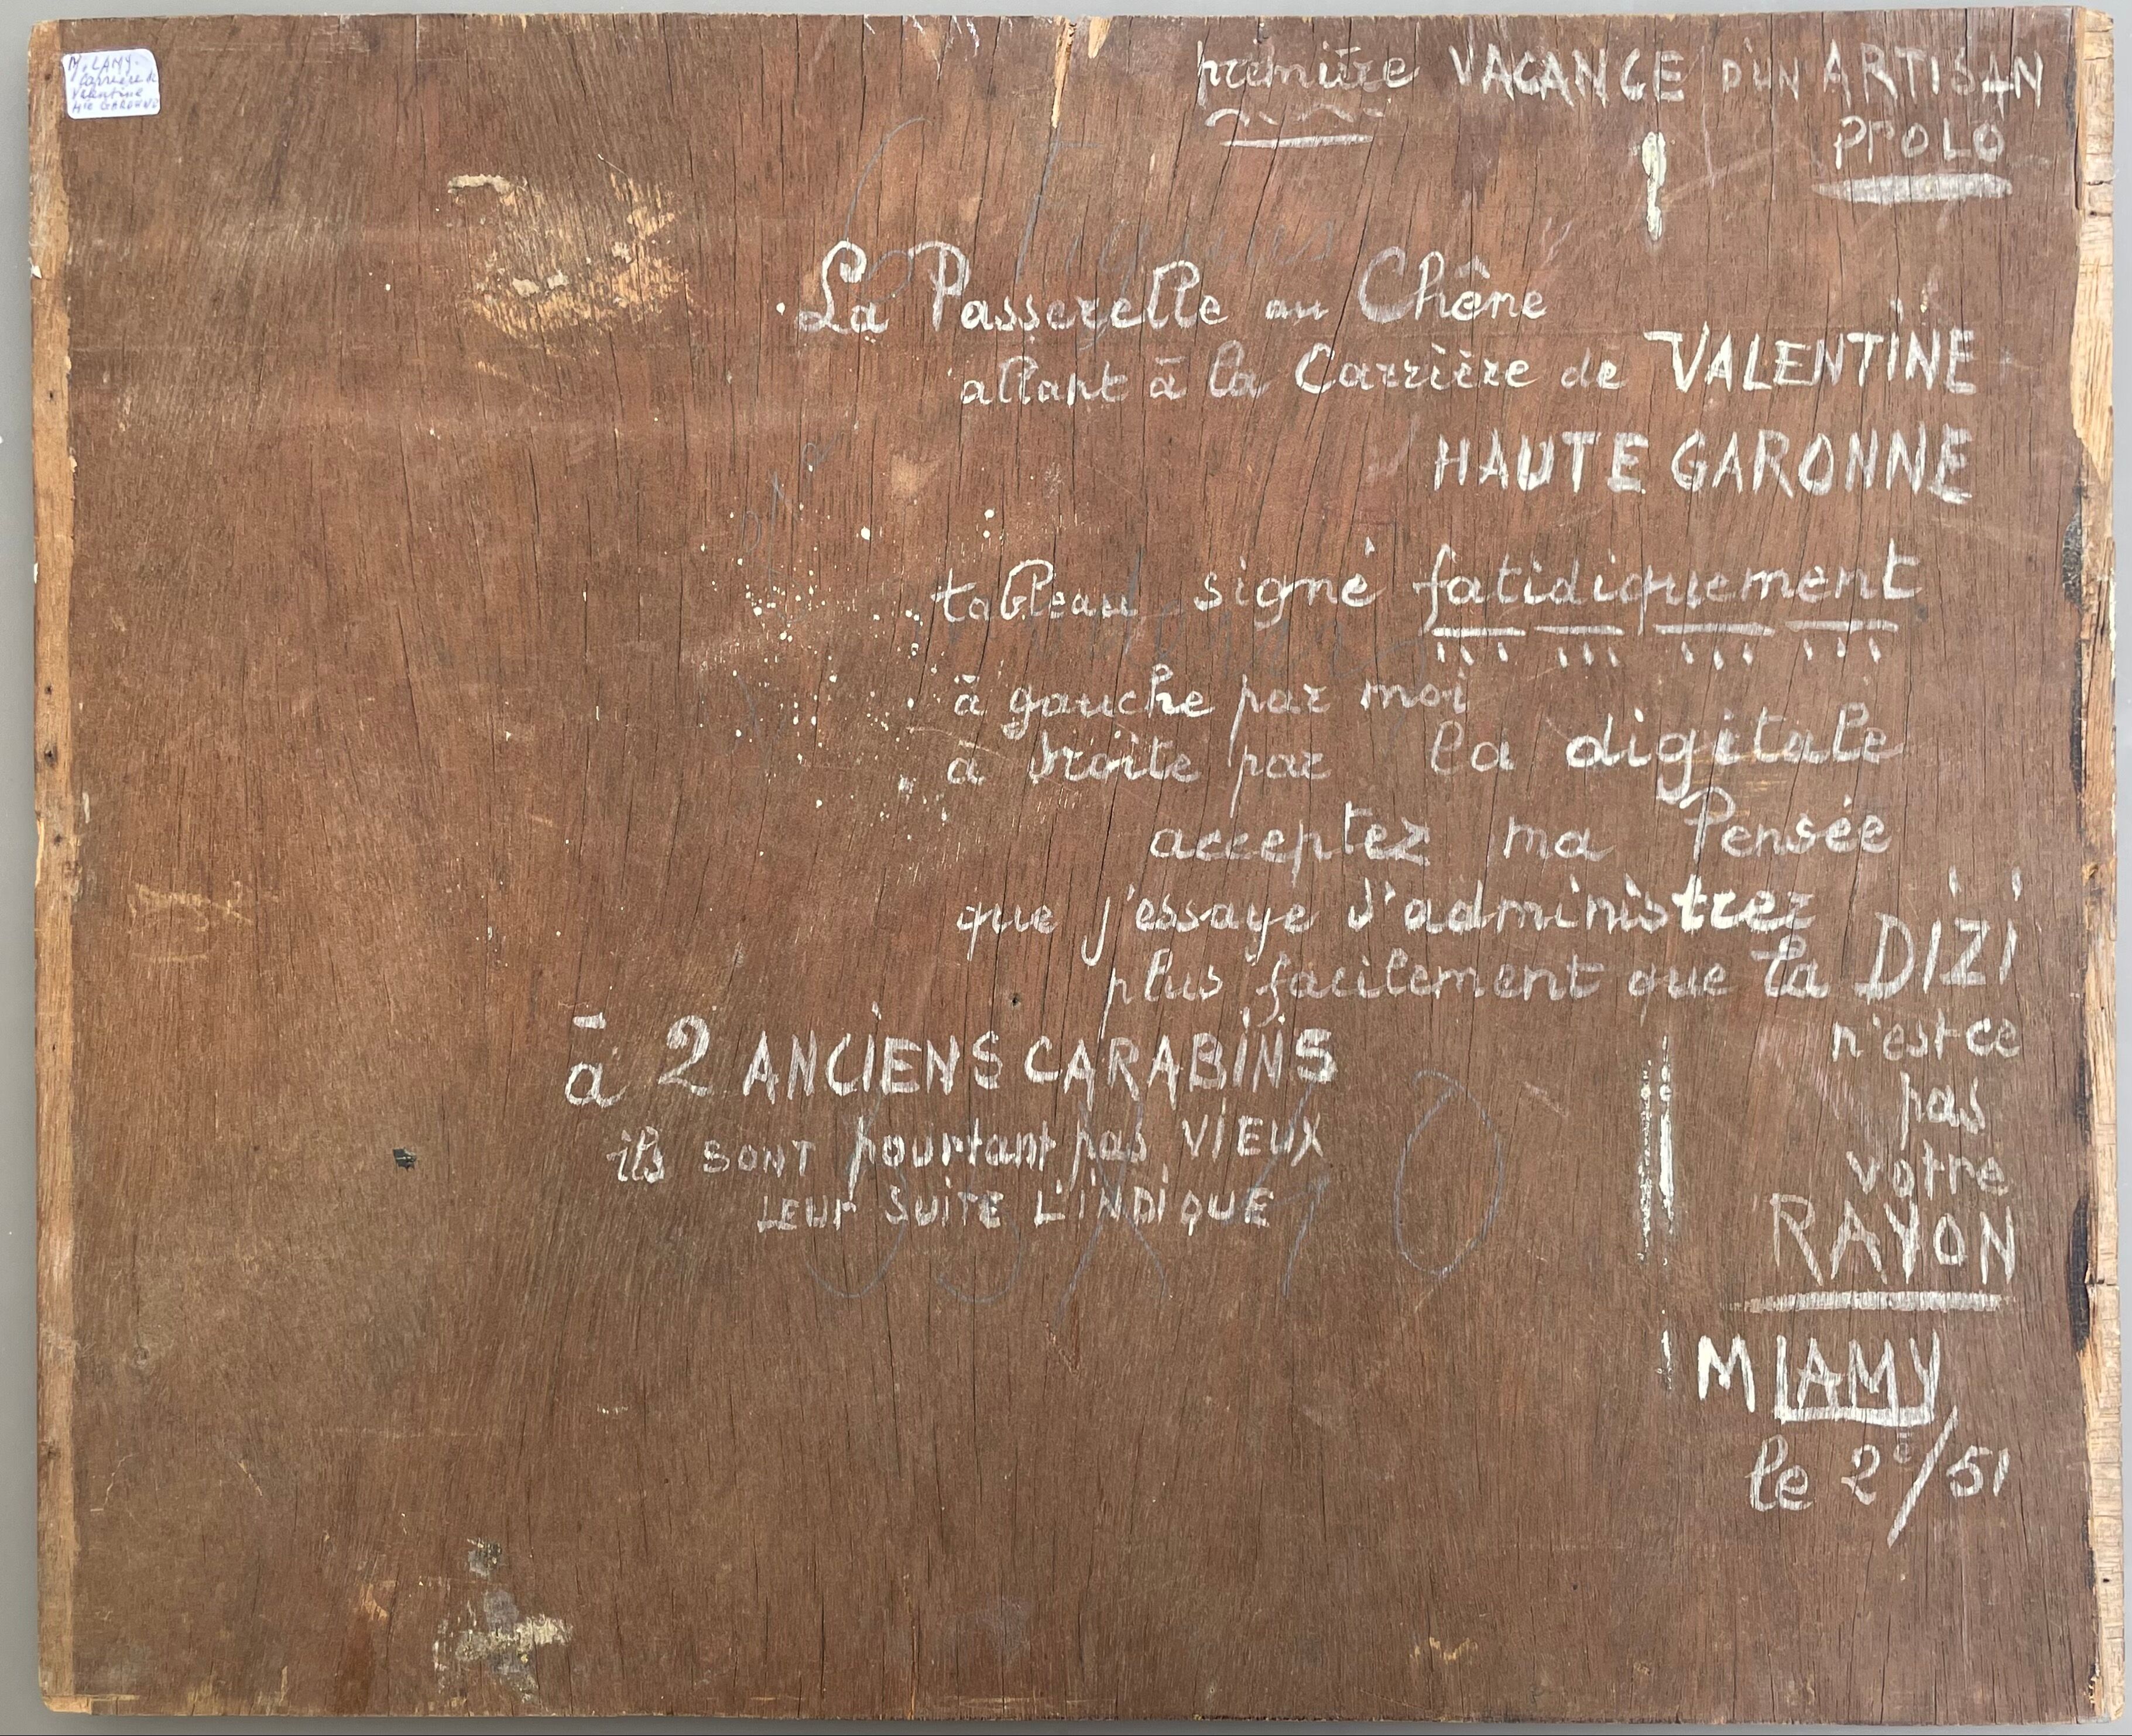 M. LAMY.
Carrière de
Valentine
Hte GARONNE
première VACANCE D'UN ARTISAN
PROLO
La Passerelle au Chêne
allant à la Carrière de VALENTINE
HAUTE GARONNE
tableau signé fatidiquement
à gauche par moi
à droite par la digitale
acceptez ma Pensée
que j'essaye d'administrer
plus facilement que la DIZI
n'est ce
pas
votre
RAYON
à 2 ANCIENS CARABINS
ils SONT pourtant pas VIEUX
LEUR SUITE L'INDIQUE
M LAMY
le 2e/51